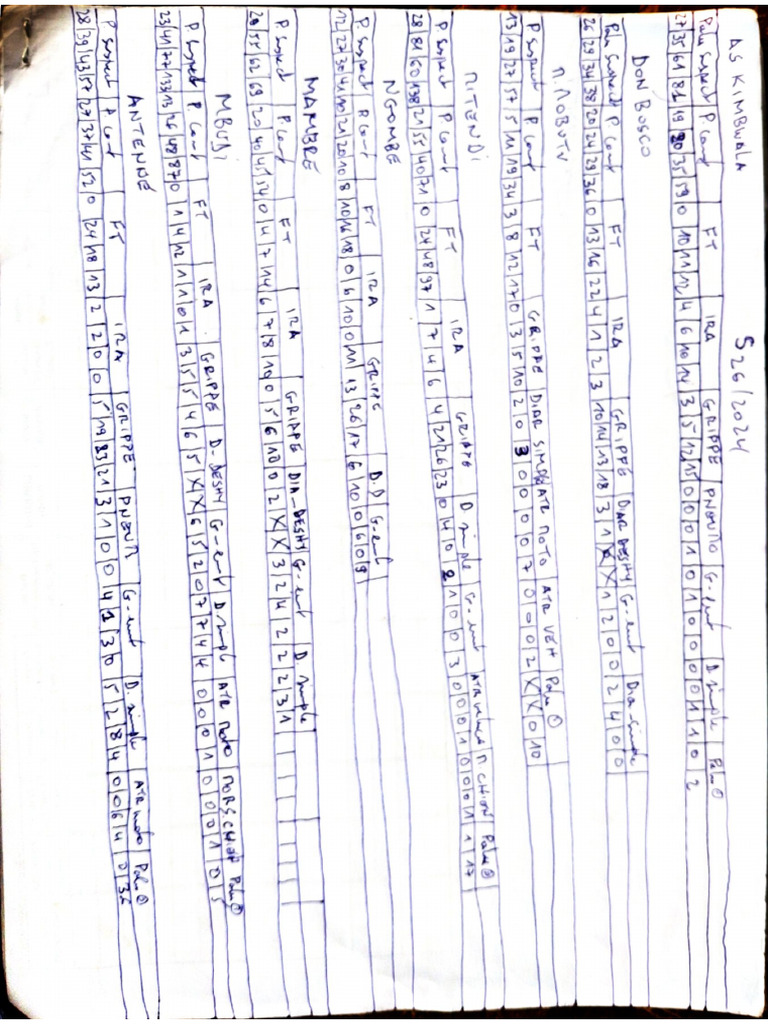 AS KIMBWALA S26/2024
Palu suspect P. conf FT IRA GRIPPE PNEUMO G. ent D simple Palu ⊕
27 35 61 82 19 20 35 59 0 10 11 12 4 6 10 14 3 5 12 15 0 0 0 1 0 1 0 0 0 0 1 1 0 2
DON BOSCO
Palu Suspect P. conf FT IRA GRIPPE DIAR DESHY G-ent Dia simple
26 29 34 38 20 24 29 36 0 13 16 22 4 1 2 3 10 14 13 18 3 1 X X 1 2 0 0 2 4 0 0
M. MOBUTU
P. Suspect P. Conf FT GRIPPE DIAR SIMPLE ATR MOTO ATR VEH Palu ⊕
13 19 27 57 5 11 19 34 3 8 12 17 0 3 5 10 2 0 3 0 0 0 0 7 0 0 0 2 X X 0 10
MITENDI
P. suspect P. cont FT IRA GRIPPE D simple G-ent ATR vehicule M CHION Palu ⊕
28 84 60 138 21 55 40 71 0 24 48 37 1 7 4 6 4 21 26 23 0 4 0 2 1 0 0 3 0 0 0 1 0 0 0 1 1 17
NGOMBE
P. Suspect P. Conf FT IRA GRIPPE D.D G-ent
12 27 30 41 20 21 20 10 8 10 16 18 0 6 10 0 11 13 26 17 6 10 0 6 0 9
MAMBRE
P. Suspect P. Conf FT IRA GRIPPE DIA-DESHY G-ent D. simple
20 55 62 69 20 40 45 54 0 4 7 14 6 7 8 10 0 5 6 10 0 2 X X 3 2 4 2 2 2 3 1
MBUDI
P. suspect P. Conf FT IRA GRIPPE D-DESHY G-ent D simple ATR moto MORS CHION Palu ⊕
23 41 77 139 13 26 49 87 0 1 4 12 1 1 0 1 3 5 5 4 6 5 X X 6 5 2 0 7 7 4 4 0 0 0 1 0 0 0 0 1 0 5
ANTENNE
P Suspect P. Conf FT IRA GRIPPE PNEUM G-ent D. simple ATR moto Palu ⊕
28 29 43 57 27 37 41 52 0 24 18 13 2 2 0 0 5 19 33 21 3 1 0 0 4 1 3 0 5 2 8 4 0 0 6 4 0 36